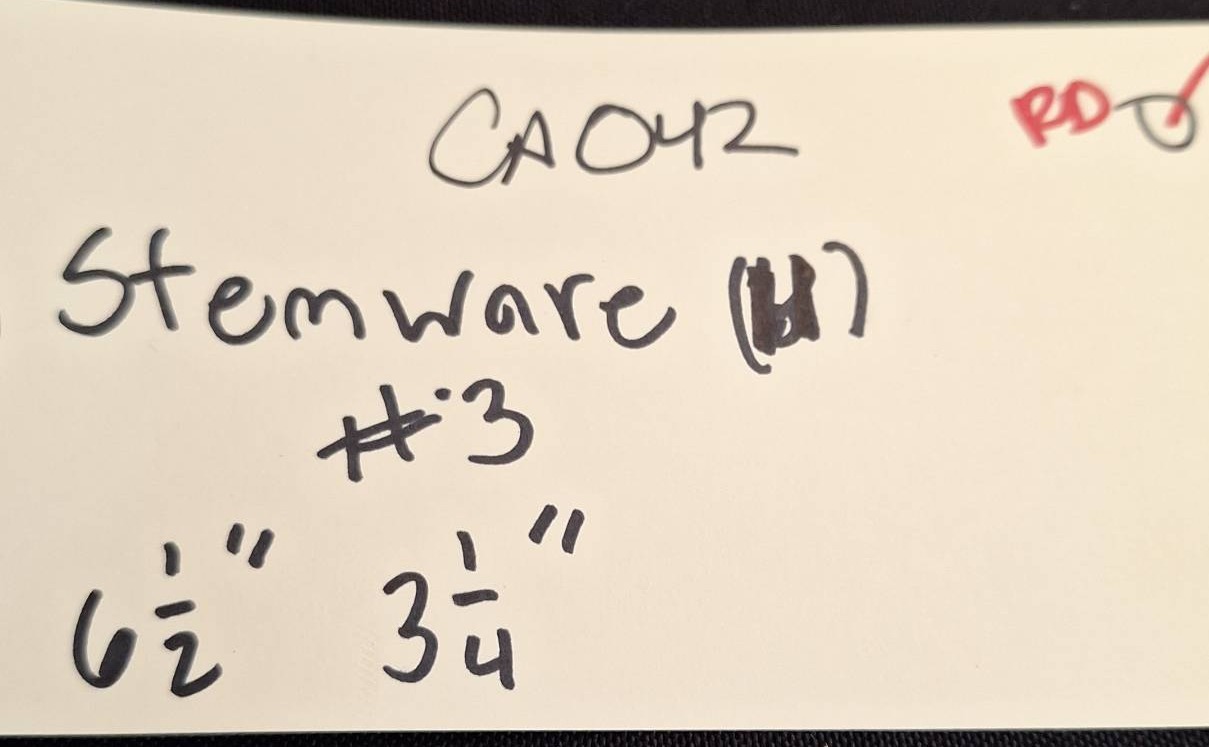 CA042 RD
Stemware
#3
6 1/2" 3 1/4"